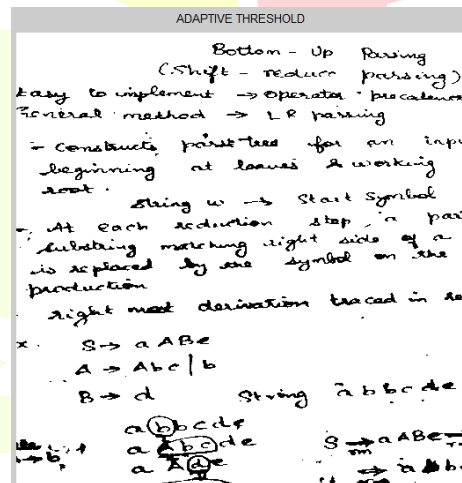 ADAPTIVE THRESHOLD
Bottom - Up Parsing
(Shift - reduce parsing)
Easy to implement → operator precedence
General method → LR parsing
- constructs parse-tree for an inpu
beginning at leaves & working
root.
string w → Start Symbol
- At each reduction step, a par
substring matching right side of a
is replaced by the symbol on the
production
right most derivation traced in re
x. S → a ABe
A → Abc | b
B → d String abbcde
abbcde
a Abc de S → a ABe
rm
a A d e